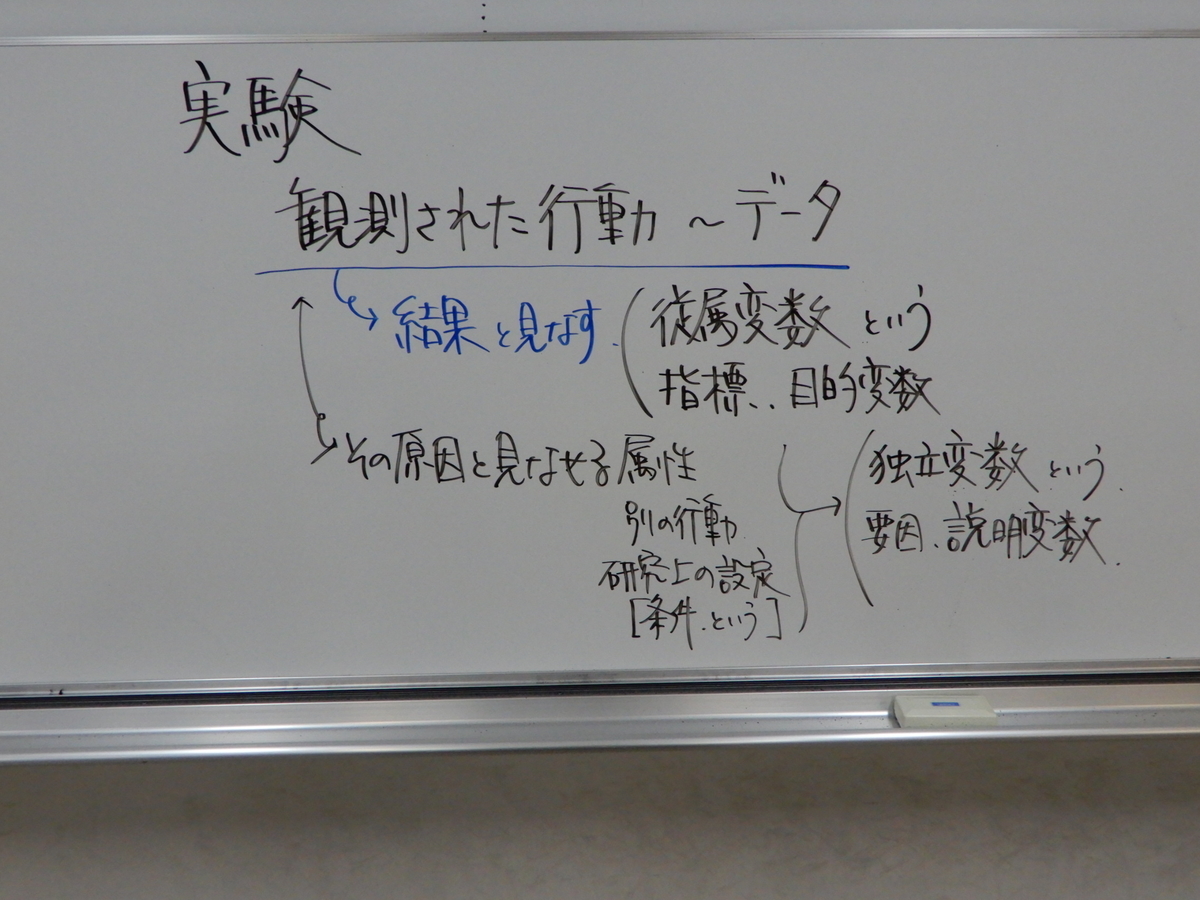 実験
観測された行動 ～データ
結果と見なす.
従属変数という
指標.. 目的変数
その原因と見なせる属性
別の行動
研究上の設定
[条件.という]
独立変数という.
要因、説明変数.